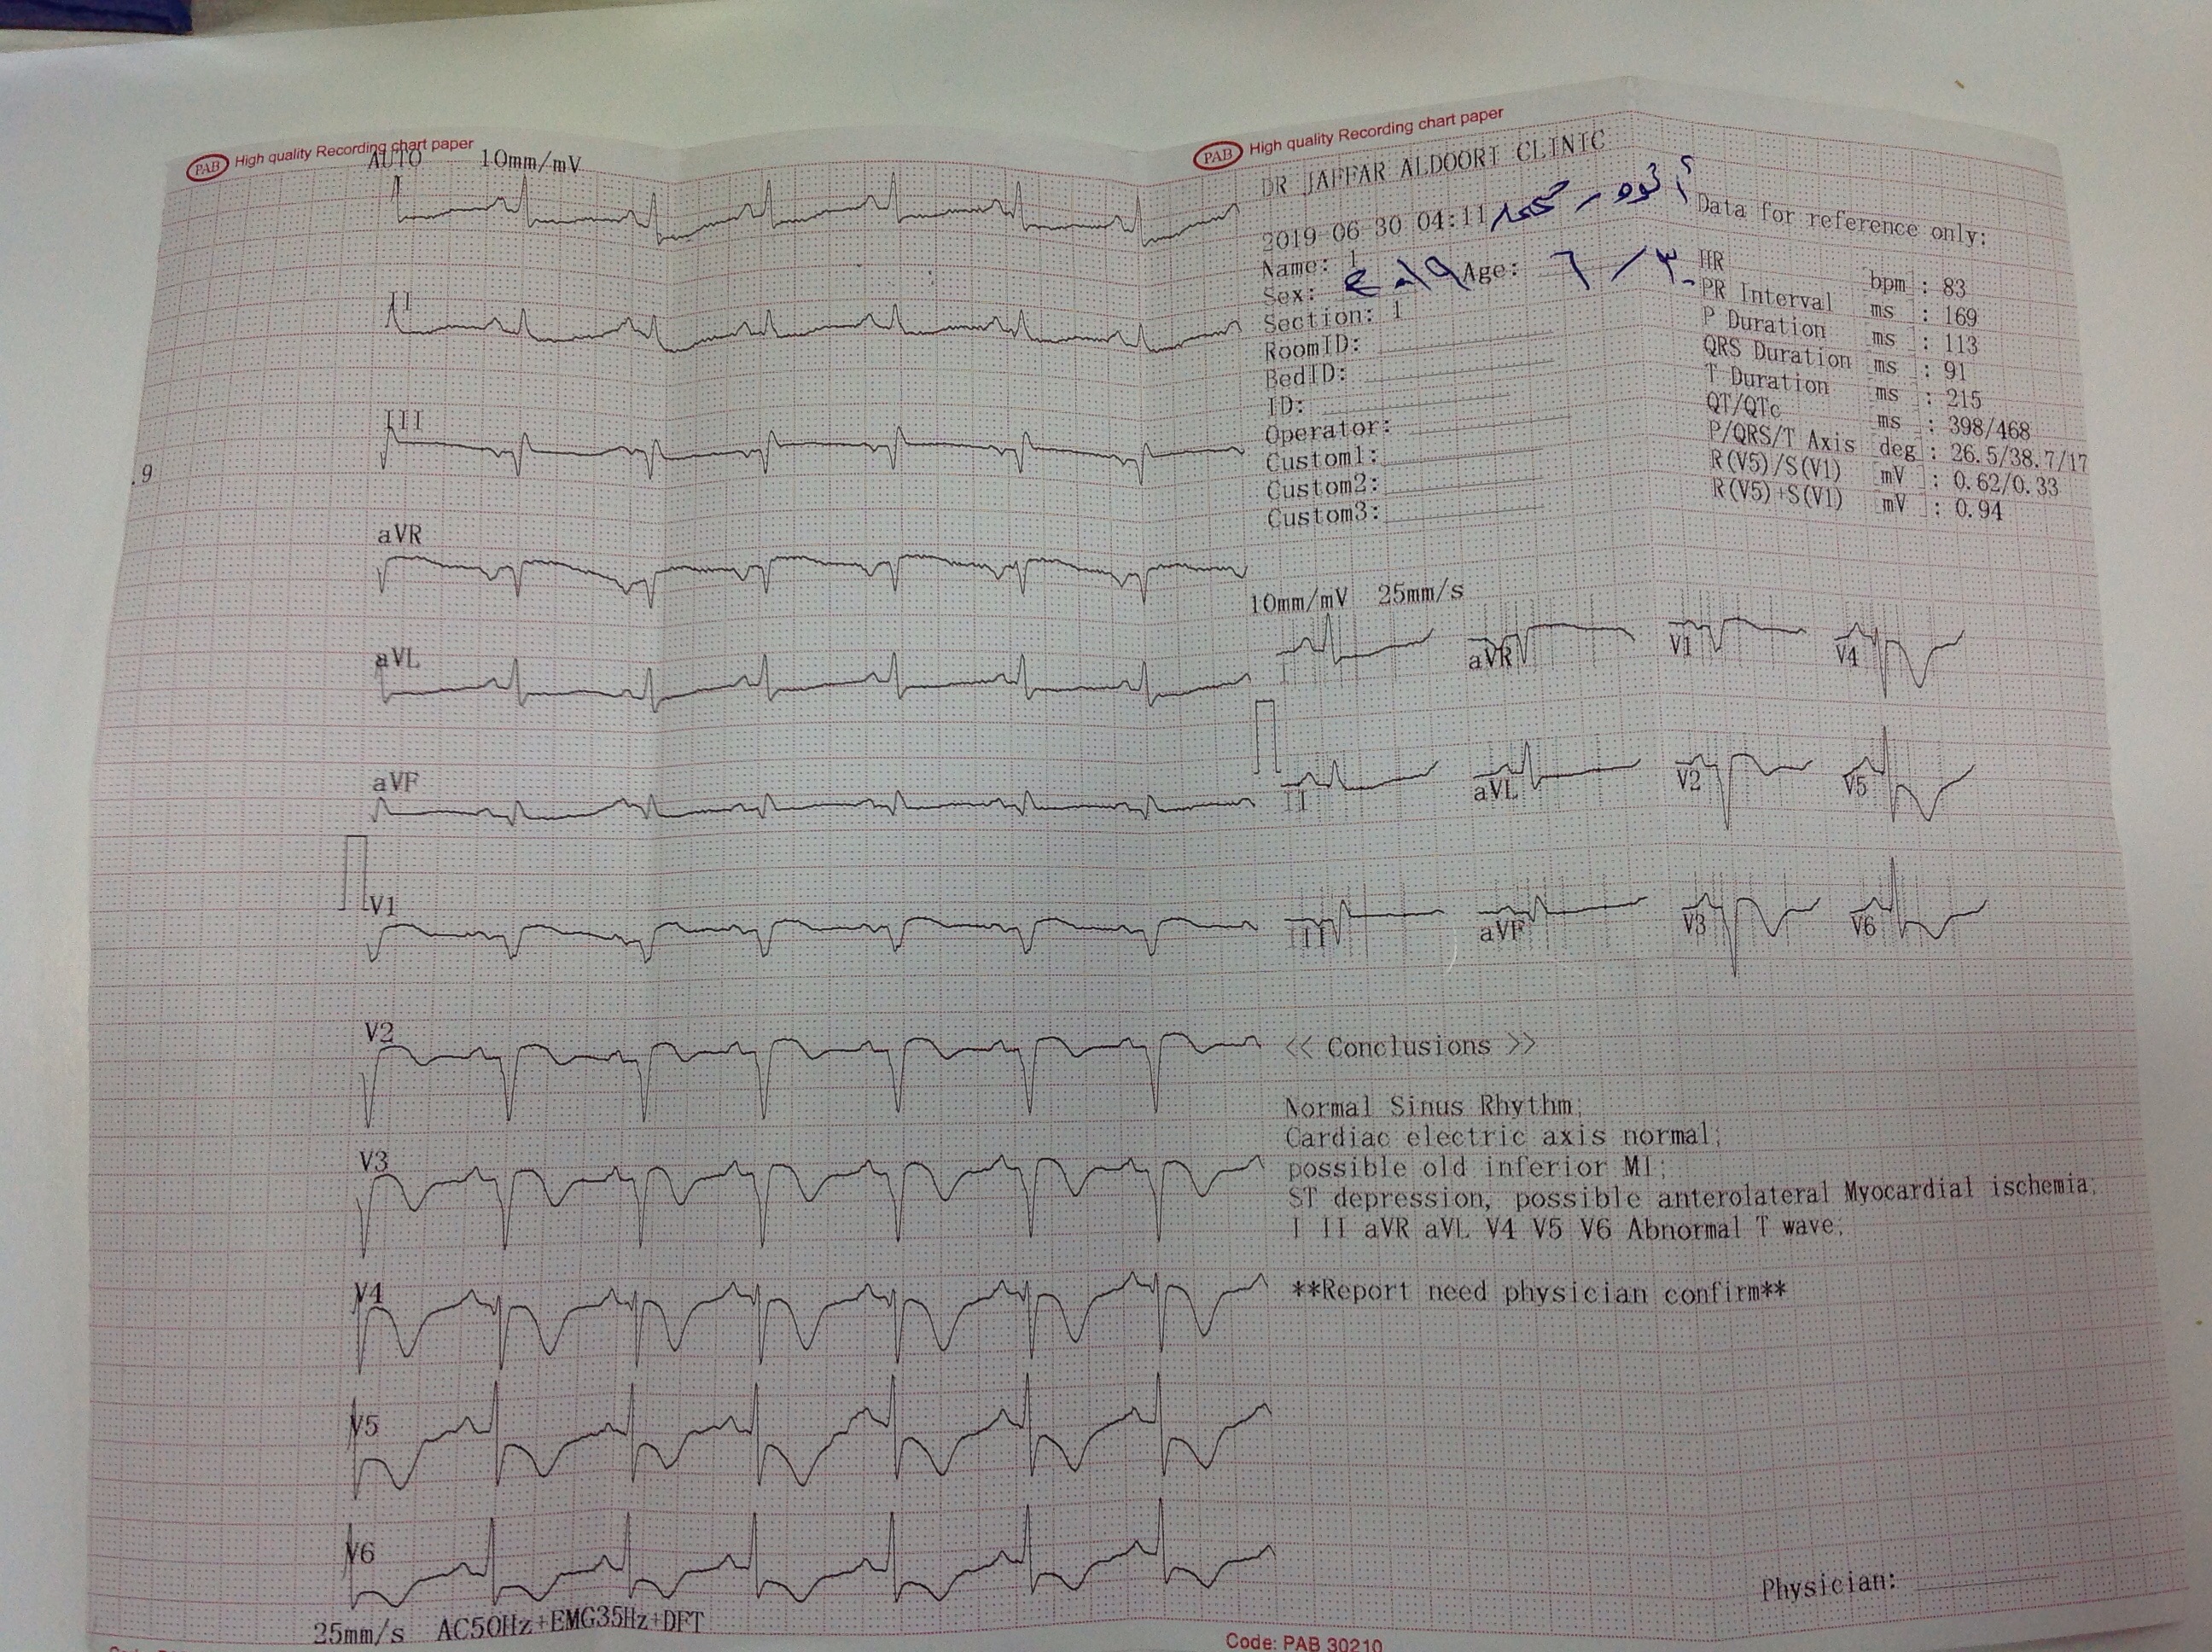 PAB High quality Recording chart paper
AUTO 10mm/mV
I
II
III
.9
aVR
aVL
aVF
V1
V2
V3
V4
V5
V6
25mm/s AC50Hz+EMG35Hz+DFT
PAB High quality Recording chart paper
DR JAFFAR ALDOORI CLINIC
2019-06-30 04:11
Name: 1
Sex: Age: ٦ / ٣٠
Section: 1
RoomID:
BedID:
ID:
Operator:
Custom1:
Custom2:
Custom3:
Data for reference only:
HR bpm : 83
PR Interval ms : 169
P Duration ms : 113
QRS Duration ms : 91
T Duration ms : 215
QT/QTc ms : 398/468
P/QRS/T Axis deg : 26.5/38.7/17
R(V5)/S(V1) mV : 0.62/0.33
R(V5)+S(V1) mV : 0.94
10mm/mV 25mm/s
I aVR V1 V4
II aVL V2 V5
III aVF V3 V6
<< Conclusions >>
Normal Sinus Rhythm;
Cardiac electric axis normal;
possible old inferior MI;
ST depression, possible anterolateral Myocardial ischemia;
I II aVR aVL V4 V5 V6 Abnormal T wave;
**Report need physician confirm**
Physician:
Code: PAB 30210